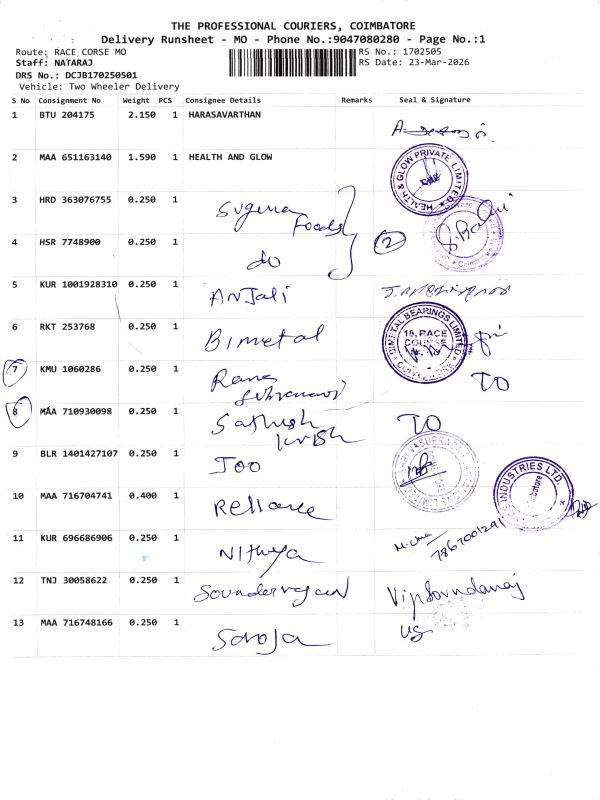 THE PROFESSIONAL COURIERS, COIMBATORE
Delivery Runsheet - MO - Phone No.:9047080280 - Page No.:1
Route: RACE CORSE MO
RS No.: 1702505
Staff: NATARAJ
RS Date: 23-Mar-2026
DRS No.: DCJB170250501
Vehicle: Two Wheeler Delivery
S No Consignment No Weight PCS Consignee Details Remarks Seal & Signature
1 BTU 204175 2.150 1 HARASAVARTHAN
2 MAA 651163140 1.590 1 HEALTH AND GLOW
HEALTH & GLOW PRIVATE LIMITED
3 HRD 363076755 0.250 1 Sugena Foods
4 HSR 7748900 0.250 1 do
2
5 KUR 1001928310 0.250 1 Anjali
6 RKT 253768 0.250 1 Bimetal
BIMETAL BEARINGS LIMITED
18, RACE COURSE
7 KMU 1060286 0.250 1 Rama TO
8 MAA 710930098 0.250 1 Sathish krish TO
9 BLR 1401427107 0.250 1 Joo
10 MAA 716704741 0.400 1 Reliance
INDUSTRIES LTD.
11 KUR 696686906 0.250 1 Nithya M. Uma
7867001291
12 TNJ 30058622 0.250 1 Sounderrajan
13 MAA 716748166 0.250 1 Saroja